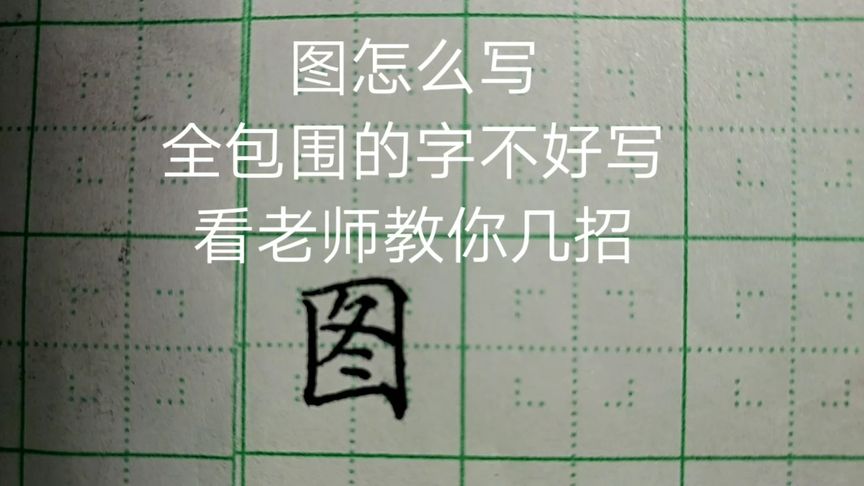 图怎么写
全包围的字不好写
看老师教你几招
图